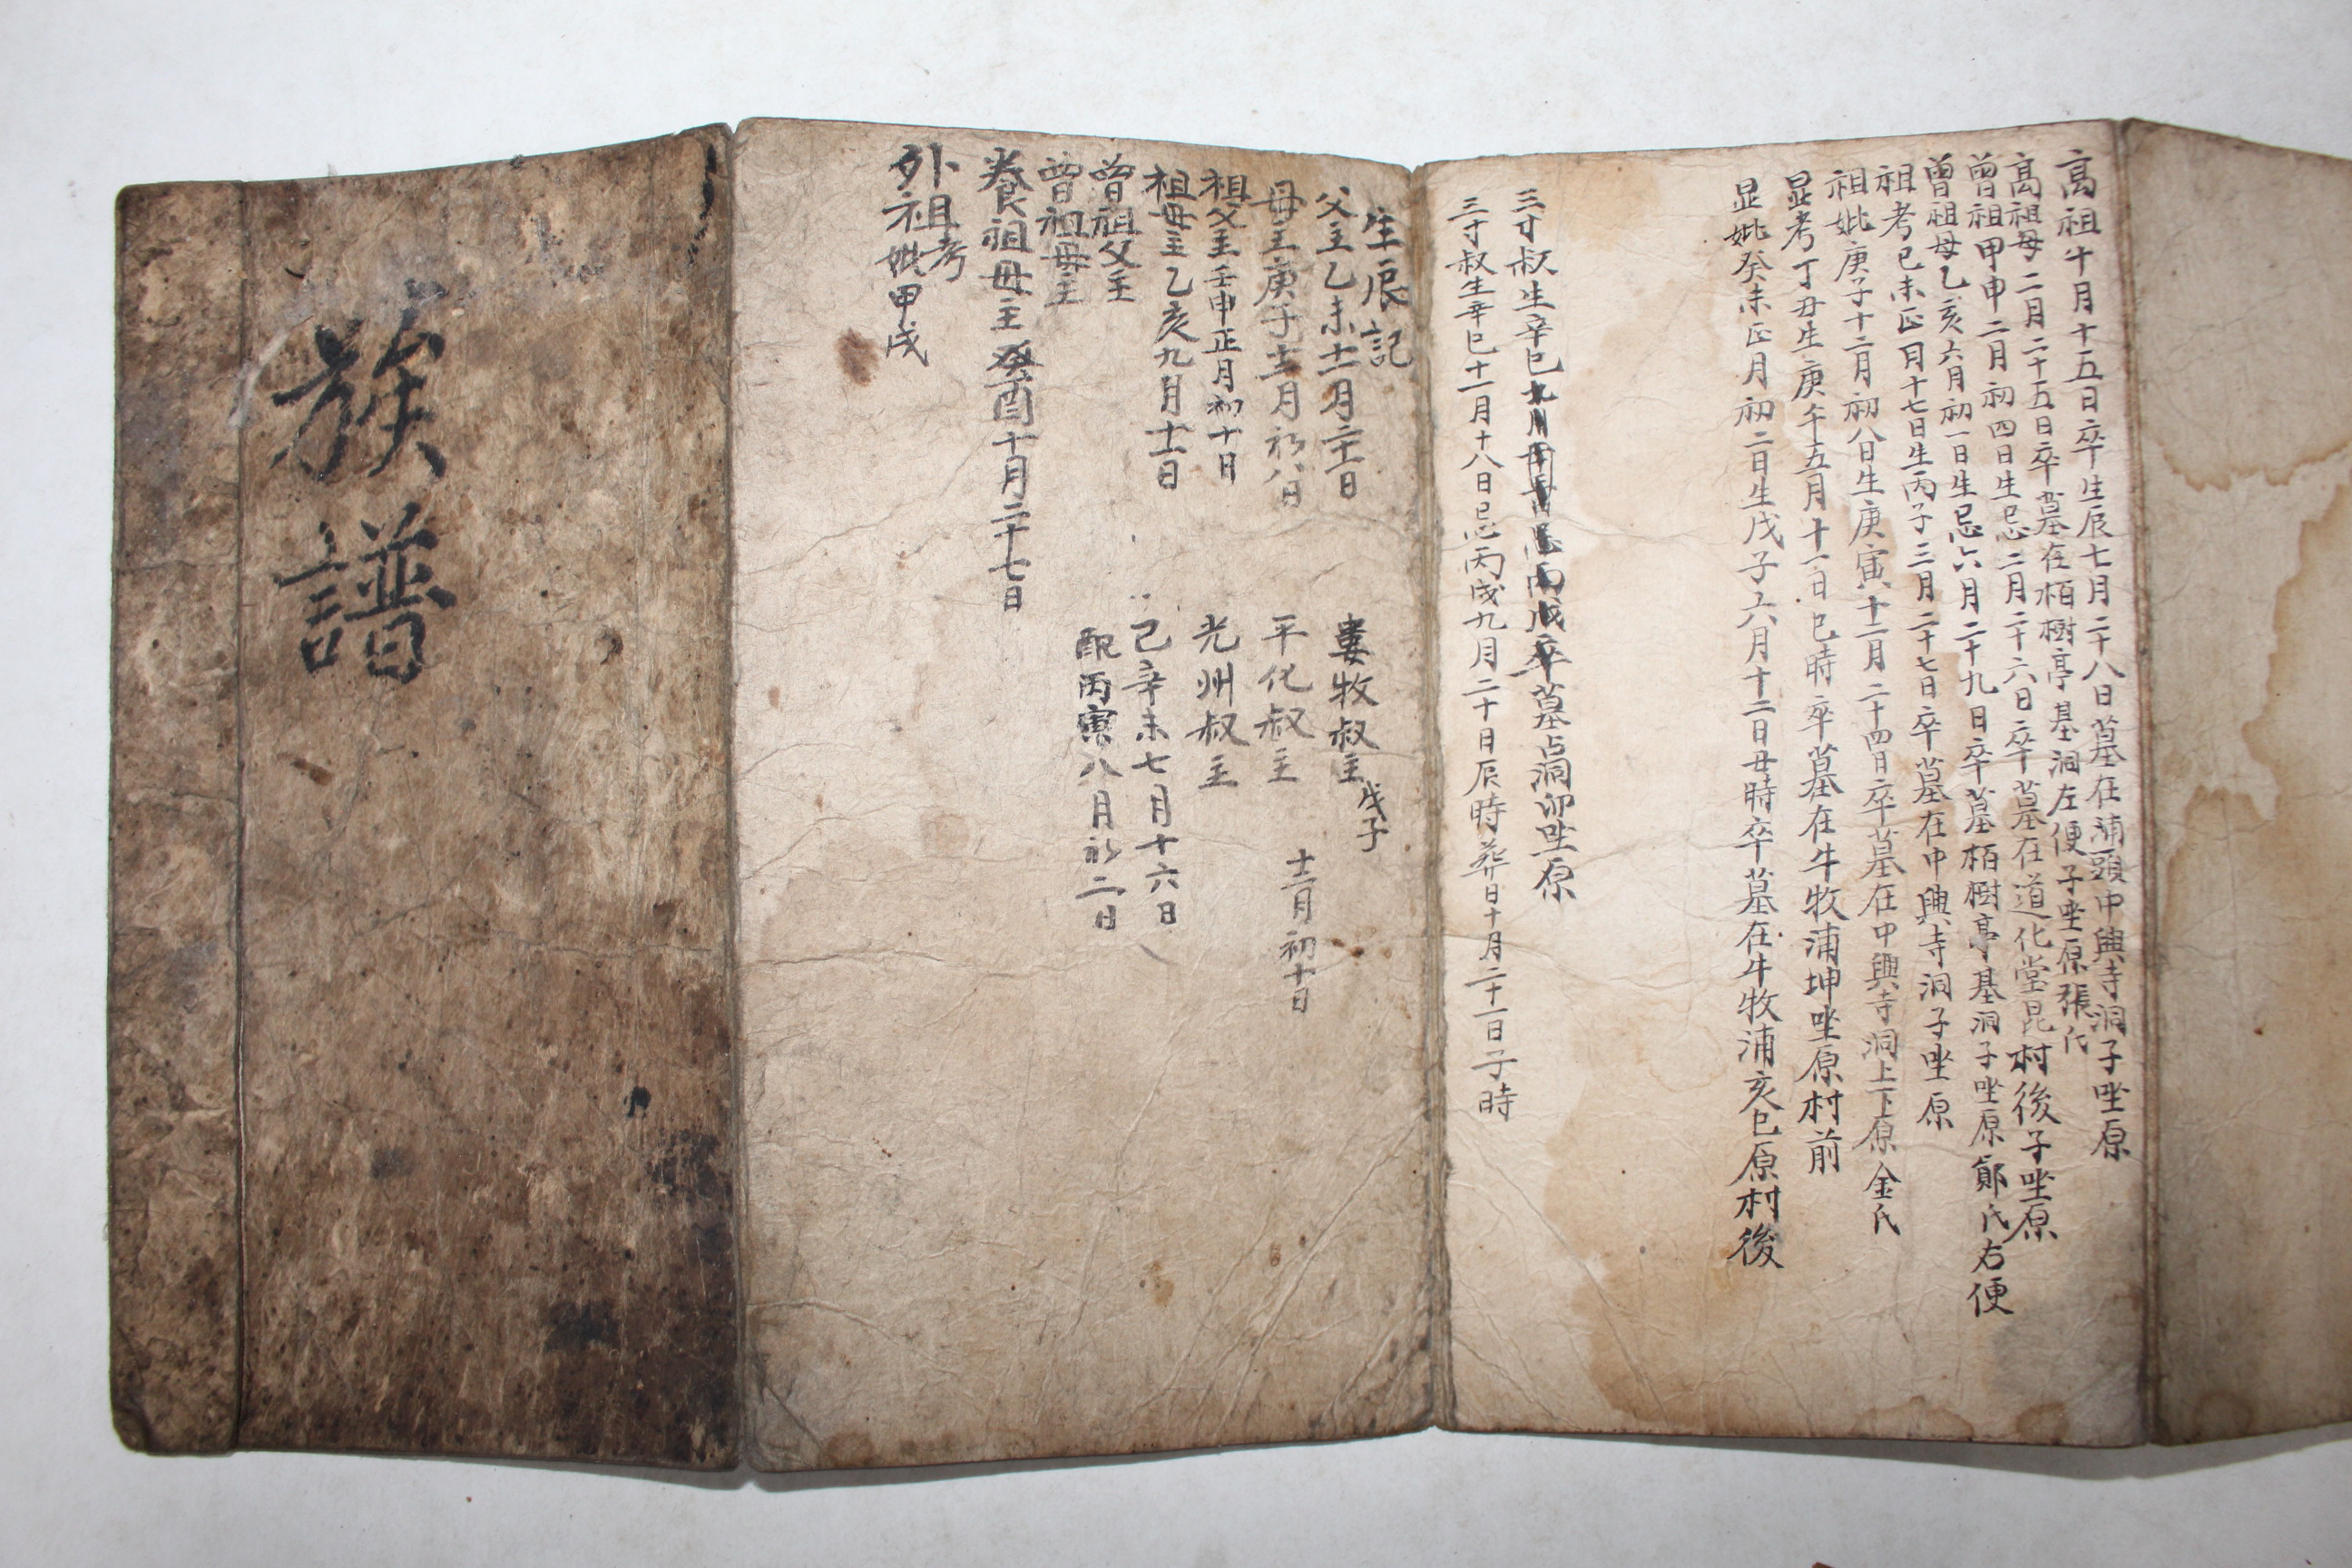 族譜
高祖十月十五日卒生辰七月二十八日墓在浦頭中興寺洞子坐原
高祖母二月二十五日卒墓在栢樹亭基洞左便子坐原張氏
曾祖甲申二月初四日生忌二月二十六日卒墓在道化堂昆村後子坐原
曾祖母乙亥六月初一日生忌六月二十九日卒墓栢樹亭基洞子坐原鄭氏右便
祖考己未正月十七日生丙子三月二十七日卒墓在中興寺洞子坐原
祖妣庚子十二月初八日生庚寅十一月二十四日卒墓在中興寺洞上下原金氏
显考丁丑生庚午五月十一日巳時卒墓在牛牧浦坤坐原村前
显妣癸未正月初二日生戊子六月十二日丑時卒墓在牛牧浦亥巳原村後
三寸叔生辛巳九月忌丙戌卒墓占洞卯坐原
三寸叔生辛巳十一月十八日忌丙戌九月二十日辰時葬日十月二十一日子時
生辰記
父主乙未十一月二十一日
母主庚子十二月初八日
祖父主壬申正月初十日
祖母主乙亥九月十二日
曾祖父主
曾祖母主
養祖母主癸酉十月二十七日
外祖考
妣甲戌
婁牧叔主戊子
平化叔主 十二月初十日
光州叔主
己辛未七月十六日
配丙寅八月初二日